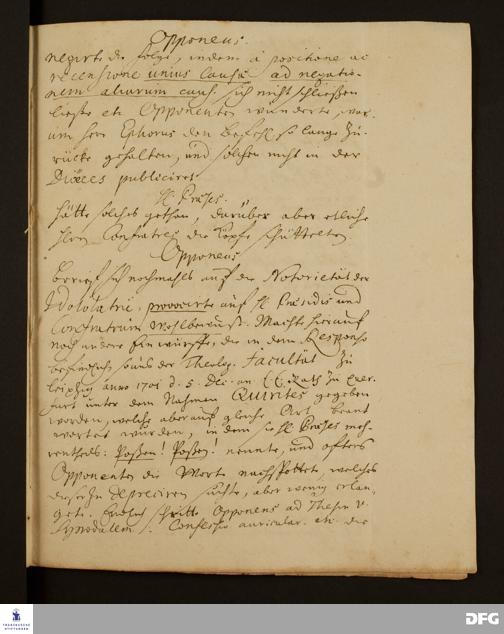 Opponens.
negirte die Folge, indem à positione ac
recensione unius causae ad negatio-
nem aliarum caus. sich nicht schließen
ließe etc. Opponenten wunderte, war-
um Herr Ephorus den Befehl so lange zu-
rücke gehalten, und solchen nicht in der
Dioeces publiciret.
H. Praeses.
hätte solches gethan, darüber aber etliche
Herrn Confratres die Köpfe schüttelten
Opponens
berief sich nochmahls auf die Notorietät der
Idololatrie, provocirte auf H. Praesidis und
Confratrum Wohlbewust. Machte hierauf
noch andere Einwürffe, die in dem Responso
befindlich so aus der Theolog. Facultät zu
Leipzig anno 1701 d. 5. Dec. an E. E. Rath zu Quer-
furt unter dem Nahmen Quirites gegeben
worden, welche aber auf gleiche Art beant
wortet wurden, indem sie H. Praeses meh-
rentheils: Possen! Possen! nennte, und öfters
Opponenten die Worte nachspottete, welches
dieser zu depreciren suchte, aber wenig erlan-
gete. Endlich schritte Opponens ad Thesin V.
Synodalem. Confessio auricular. etc. die
DFG